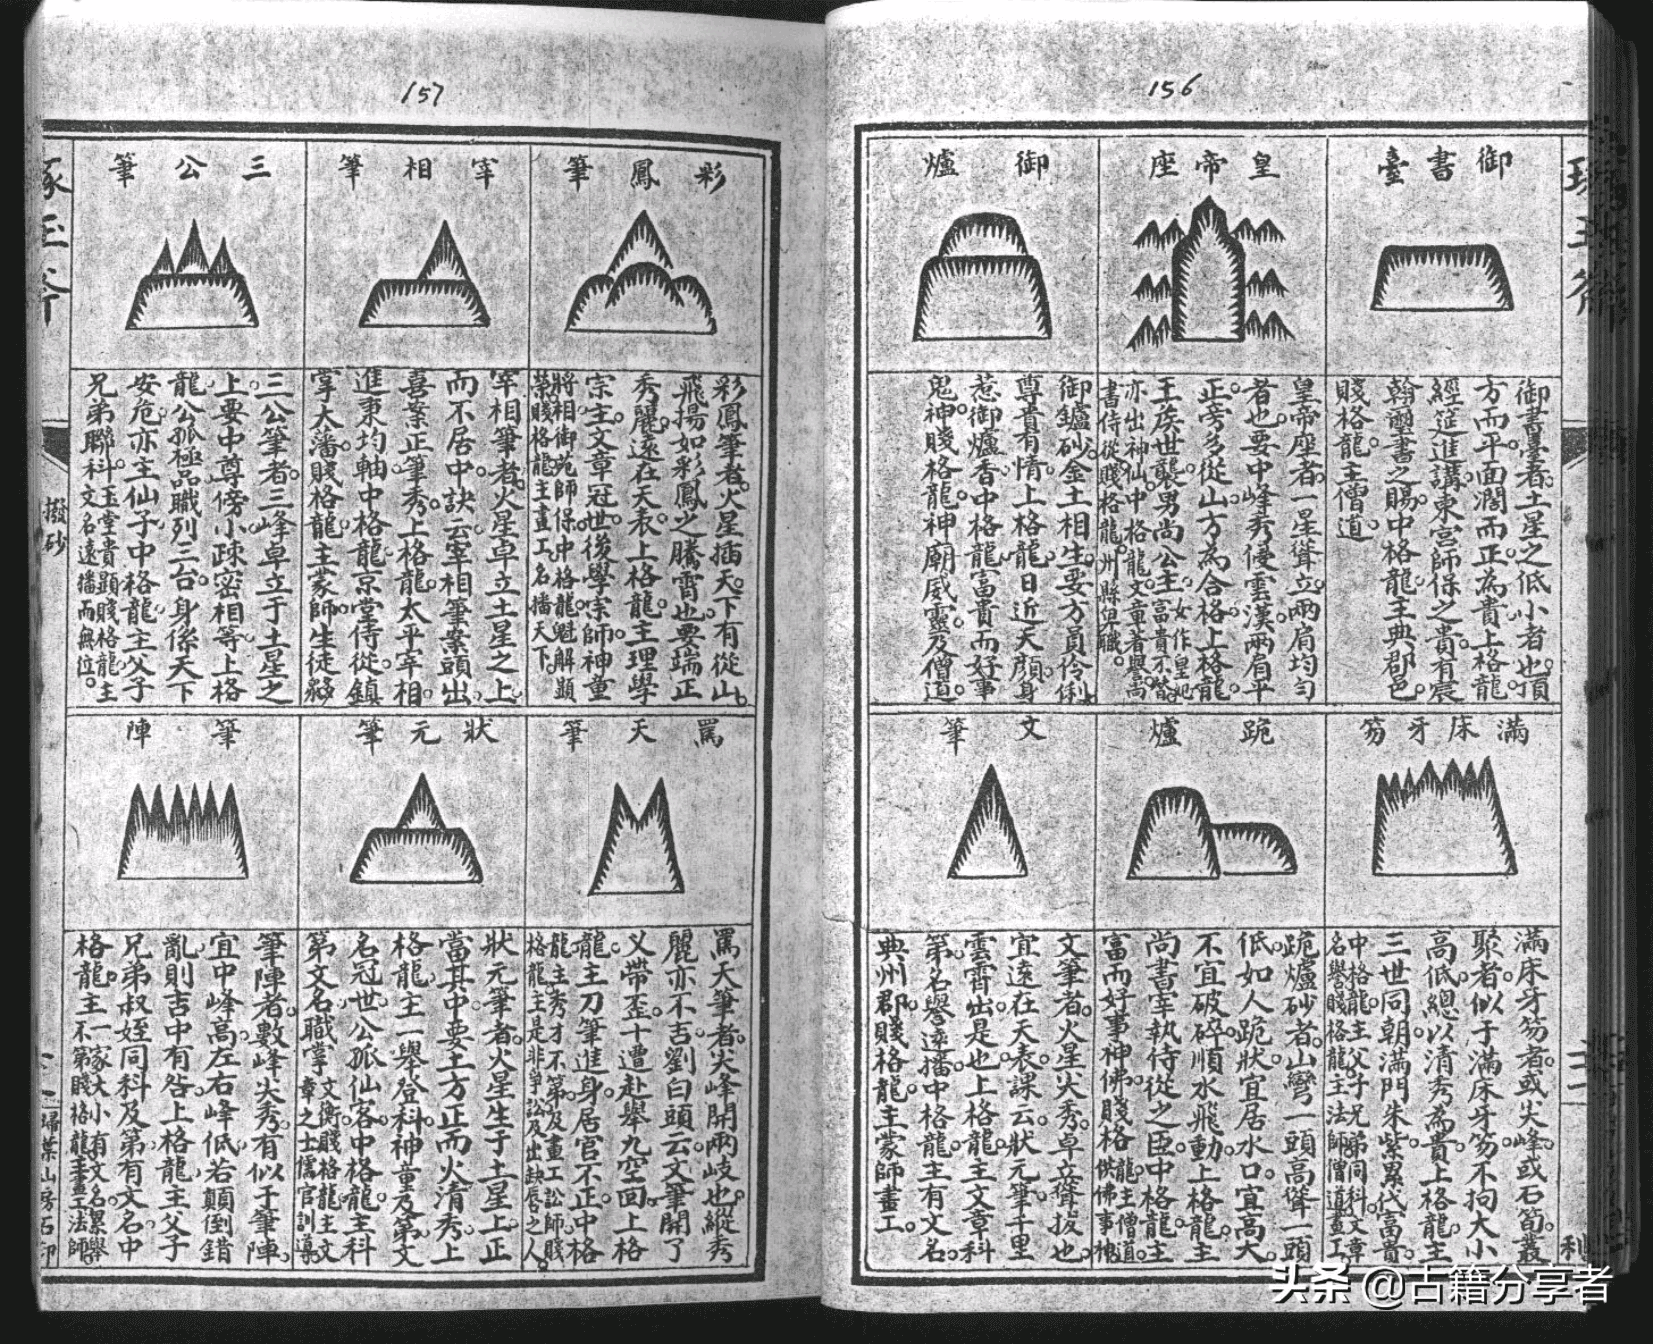 156
御書臺
御書臺者土星之低小者也頂
方而平面濶而正為貴上格龍
經筵進講東宮師保之貴有宸
翰璽書之賜中格龍主典郡邑
賤格龍主僧道
皇帝座
皇帝座者一星聳立兩肩均勻
者也要中峰秀侵雲漢兩肩平
正旁多從山方為合格上格龍
王侯世襲男尚公主女作皇妃富貴不替
亦出神仙中格龍文章著譽高
書侍從賤格龍州縣卑職
御爐
御鑪砂金土相生要方員伶俐
尊貴有情上格龍日近天顔身
惹御爐香中格龍富貴而好事
鬼神賤格龍神廟威靈及僧道
滿床牙笏
滿床牙笏者或尖峰或石筍叢
聚者似于滿床牙笏不拘大小
高低總以清秀為貴上格龍主
三世同朝滿門朱紫累代富貴
中格龍主父子兄弟同科文章
名譽賤格龍主法師僧道畫工
跪爐
跪爐砂者山彎一頭高聳一頭
低如人跪狀宜居水口宜高大
不宜破碎順水飛動上格龍主
尚書宰執侍從之臣中格龍主
富而好事神佛賤格龍主僧道供佛事神
文筆
文筆者火星尖秀卓立聳拔也
宜遠在天表課云狀元筆千里
雲霄出是也上格龍主文章科
第名譽遠播中格龍主有文名
典州郡賤格龍主蒙師畫工
157
彩鳳筆
彩鳳筆者火星插天下有從山
飛揚如彩鳳之騰霄也要端正
秀麗遠在天表上格龍主理學
宗主文章冠世後學宗師神童
將相御苑師保中格龍魁解顯
榮賤格龍主畫工名播天下
宰相筆
宰相筆者火星卓立土星之上
而不居中訣云宰相筆案頭出
喜案正筆秀上格龍太平宰相
進秉均軸中格龍京堂侍從鎮
掌大藩賤格龍主蒙師生徒夥
三公筆
三公筆者三峰卓立于土星之
上要中尊傍小疎密相等上格
龍公孤極品職列三台身係天下
安危亦主仙子中格龍主父子
兄弟聯科玉堂貴顯賤格龍主文名遠播而無位
罵天筆
罵天筆者尖峰開兩岐也縱秀
麗亦不吉劉白頭云文筆開了
乂帶歪十遭赴舉九空回上格
龍主刀筆進身居官不正中格
龍主秀才不第及畫工訟師賤
格龍主是非爭訟及出缺唇之人
狀元筆
狀元筆者火星生于土星上正
當其中要土方正而火清秀上
格龍主一舉登科神童及第文
名冠世公孤仙客中格龍主科
第文名職掌文衡賤格龍主文章之士儒官訓導
筆陣
筆陣者數峰尖秀有似于筆陣
宜中峰高左右峰低若顛倒錯
亂則吉中有咎上格龍主父子
兄弟叔姪同科及第有文名中
格龍主一家大小有文名累舉不第賤格龍主畫工法師
琢玉斧
撥砂
掃葉山房石印
头条 @古籍分享者